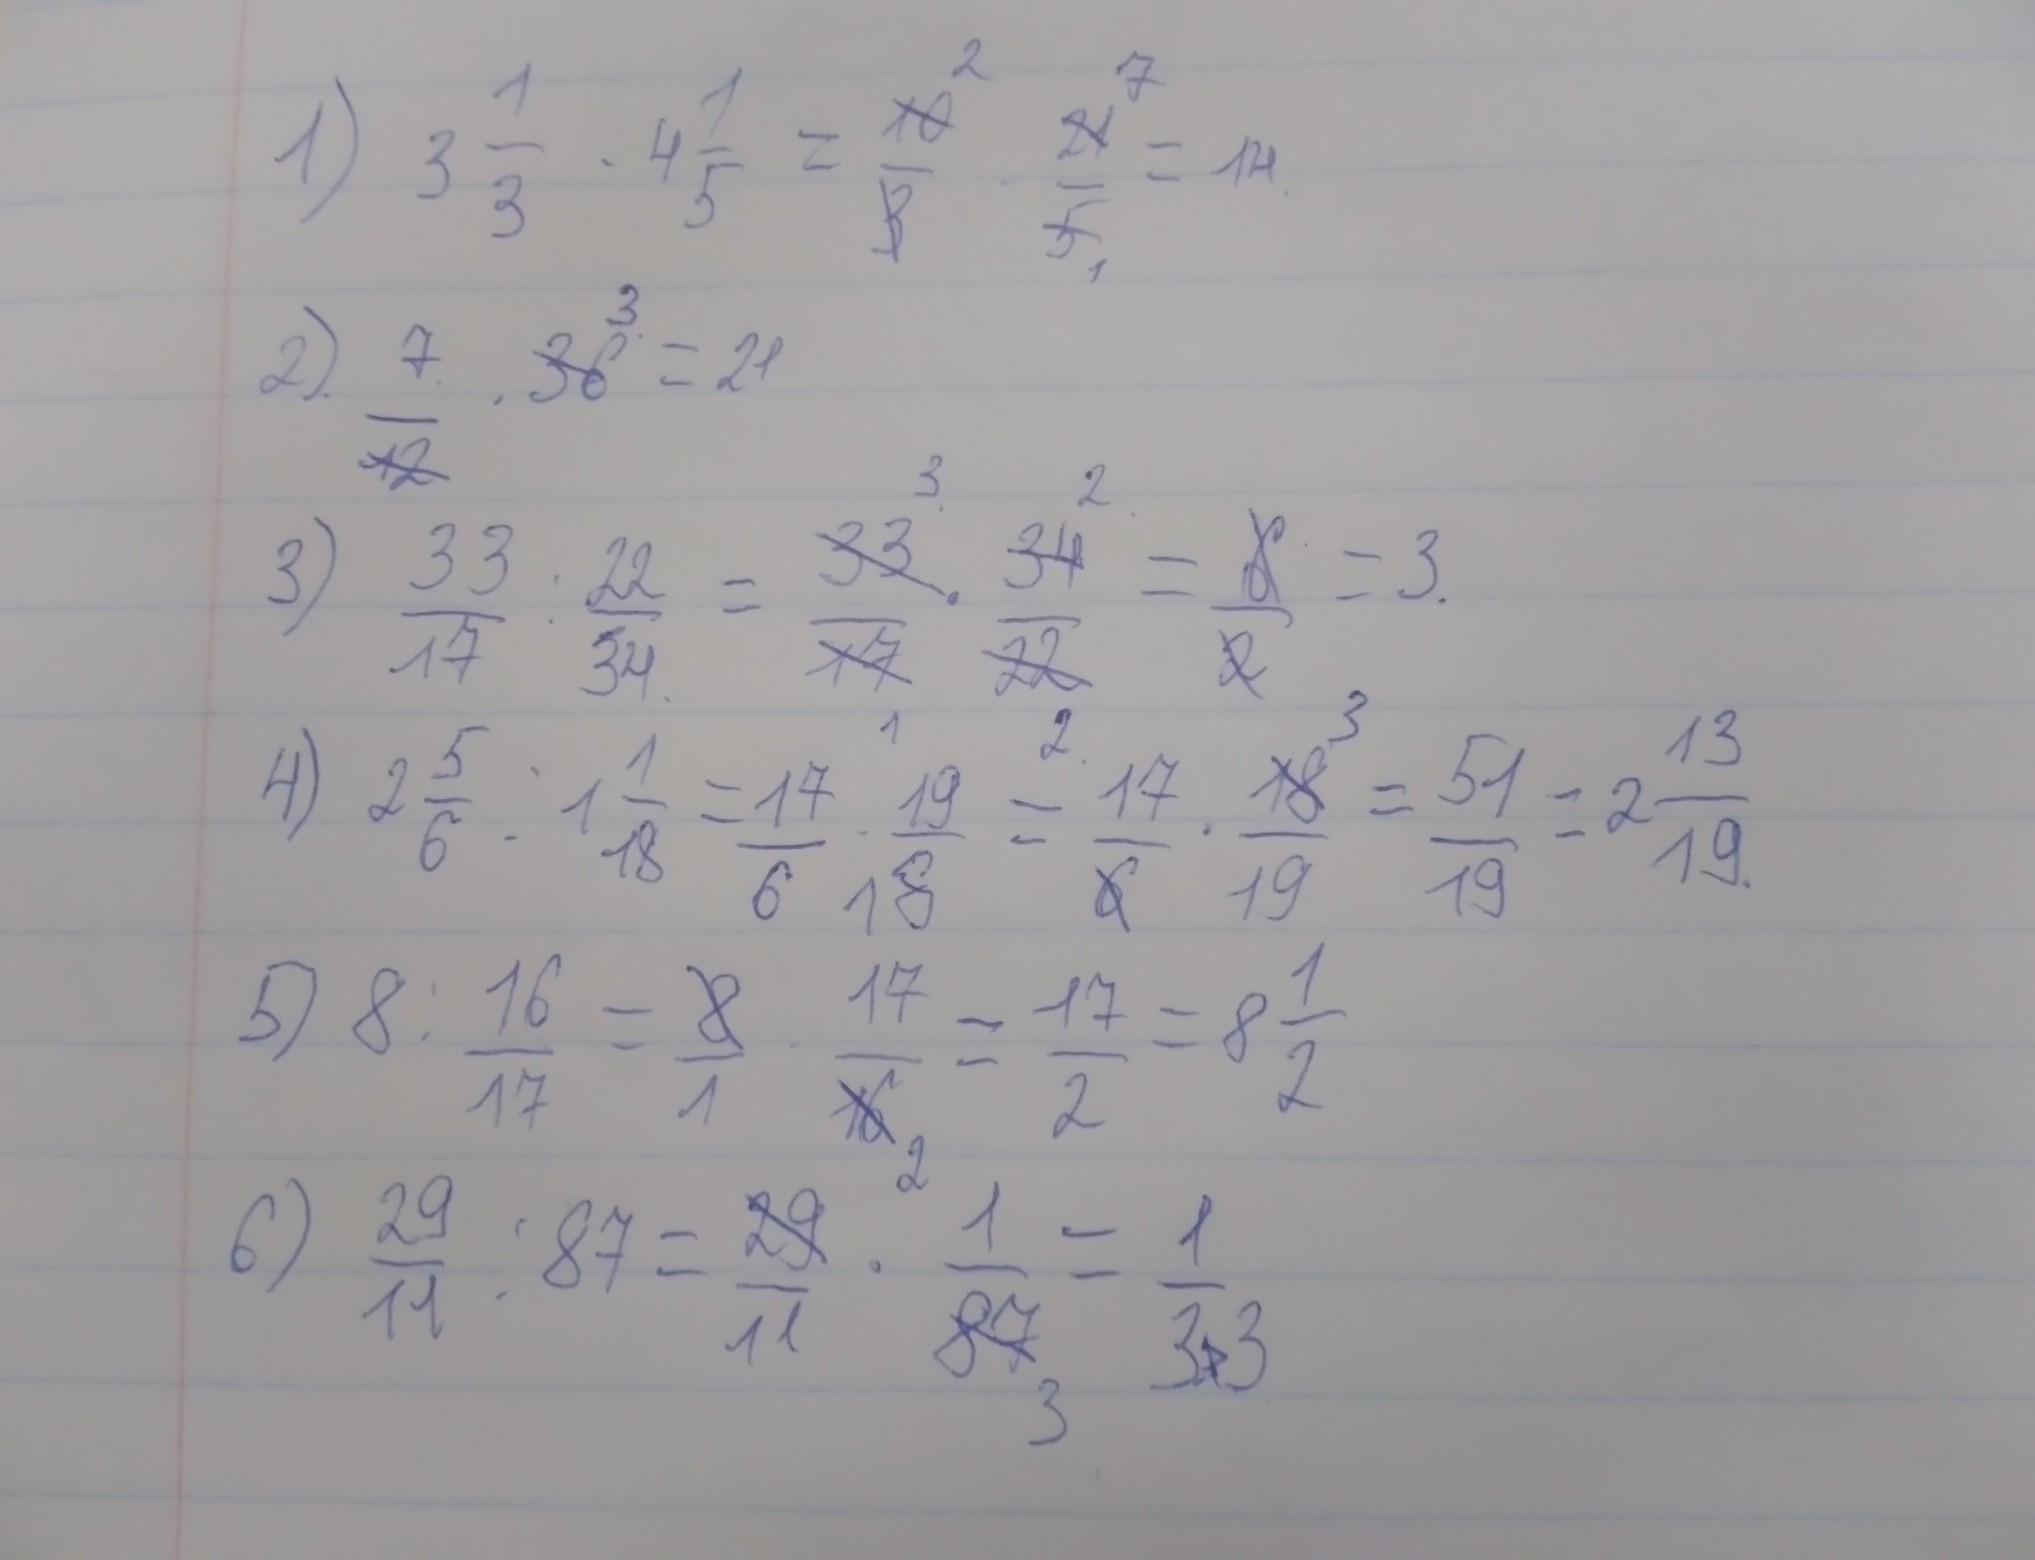 1) 3 1/3 · 4 1/5 = 10²/3 · 21⁷/5₁ = 14.
2) 7/12 · 36³ = 21
3) 33/17 : 22/34 = 33³/17₁ · 34²/22₂ = 6/2 = 3.
4) 2 5/6 : 1 1/18 = 17/6 · 19/18 = 17/6 · 18³/19 = 51/19 = 2 13/19.
5) 8 : 16/17 = 8/1 · 17/16₂ = 17/2 = 8 1/2
6) 29/11 : 87 = 29/11 · 1/87₃ = 1/33